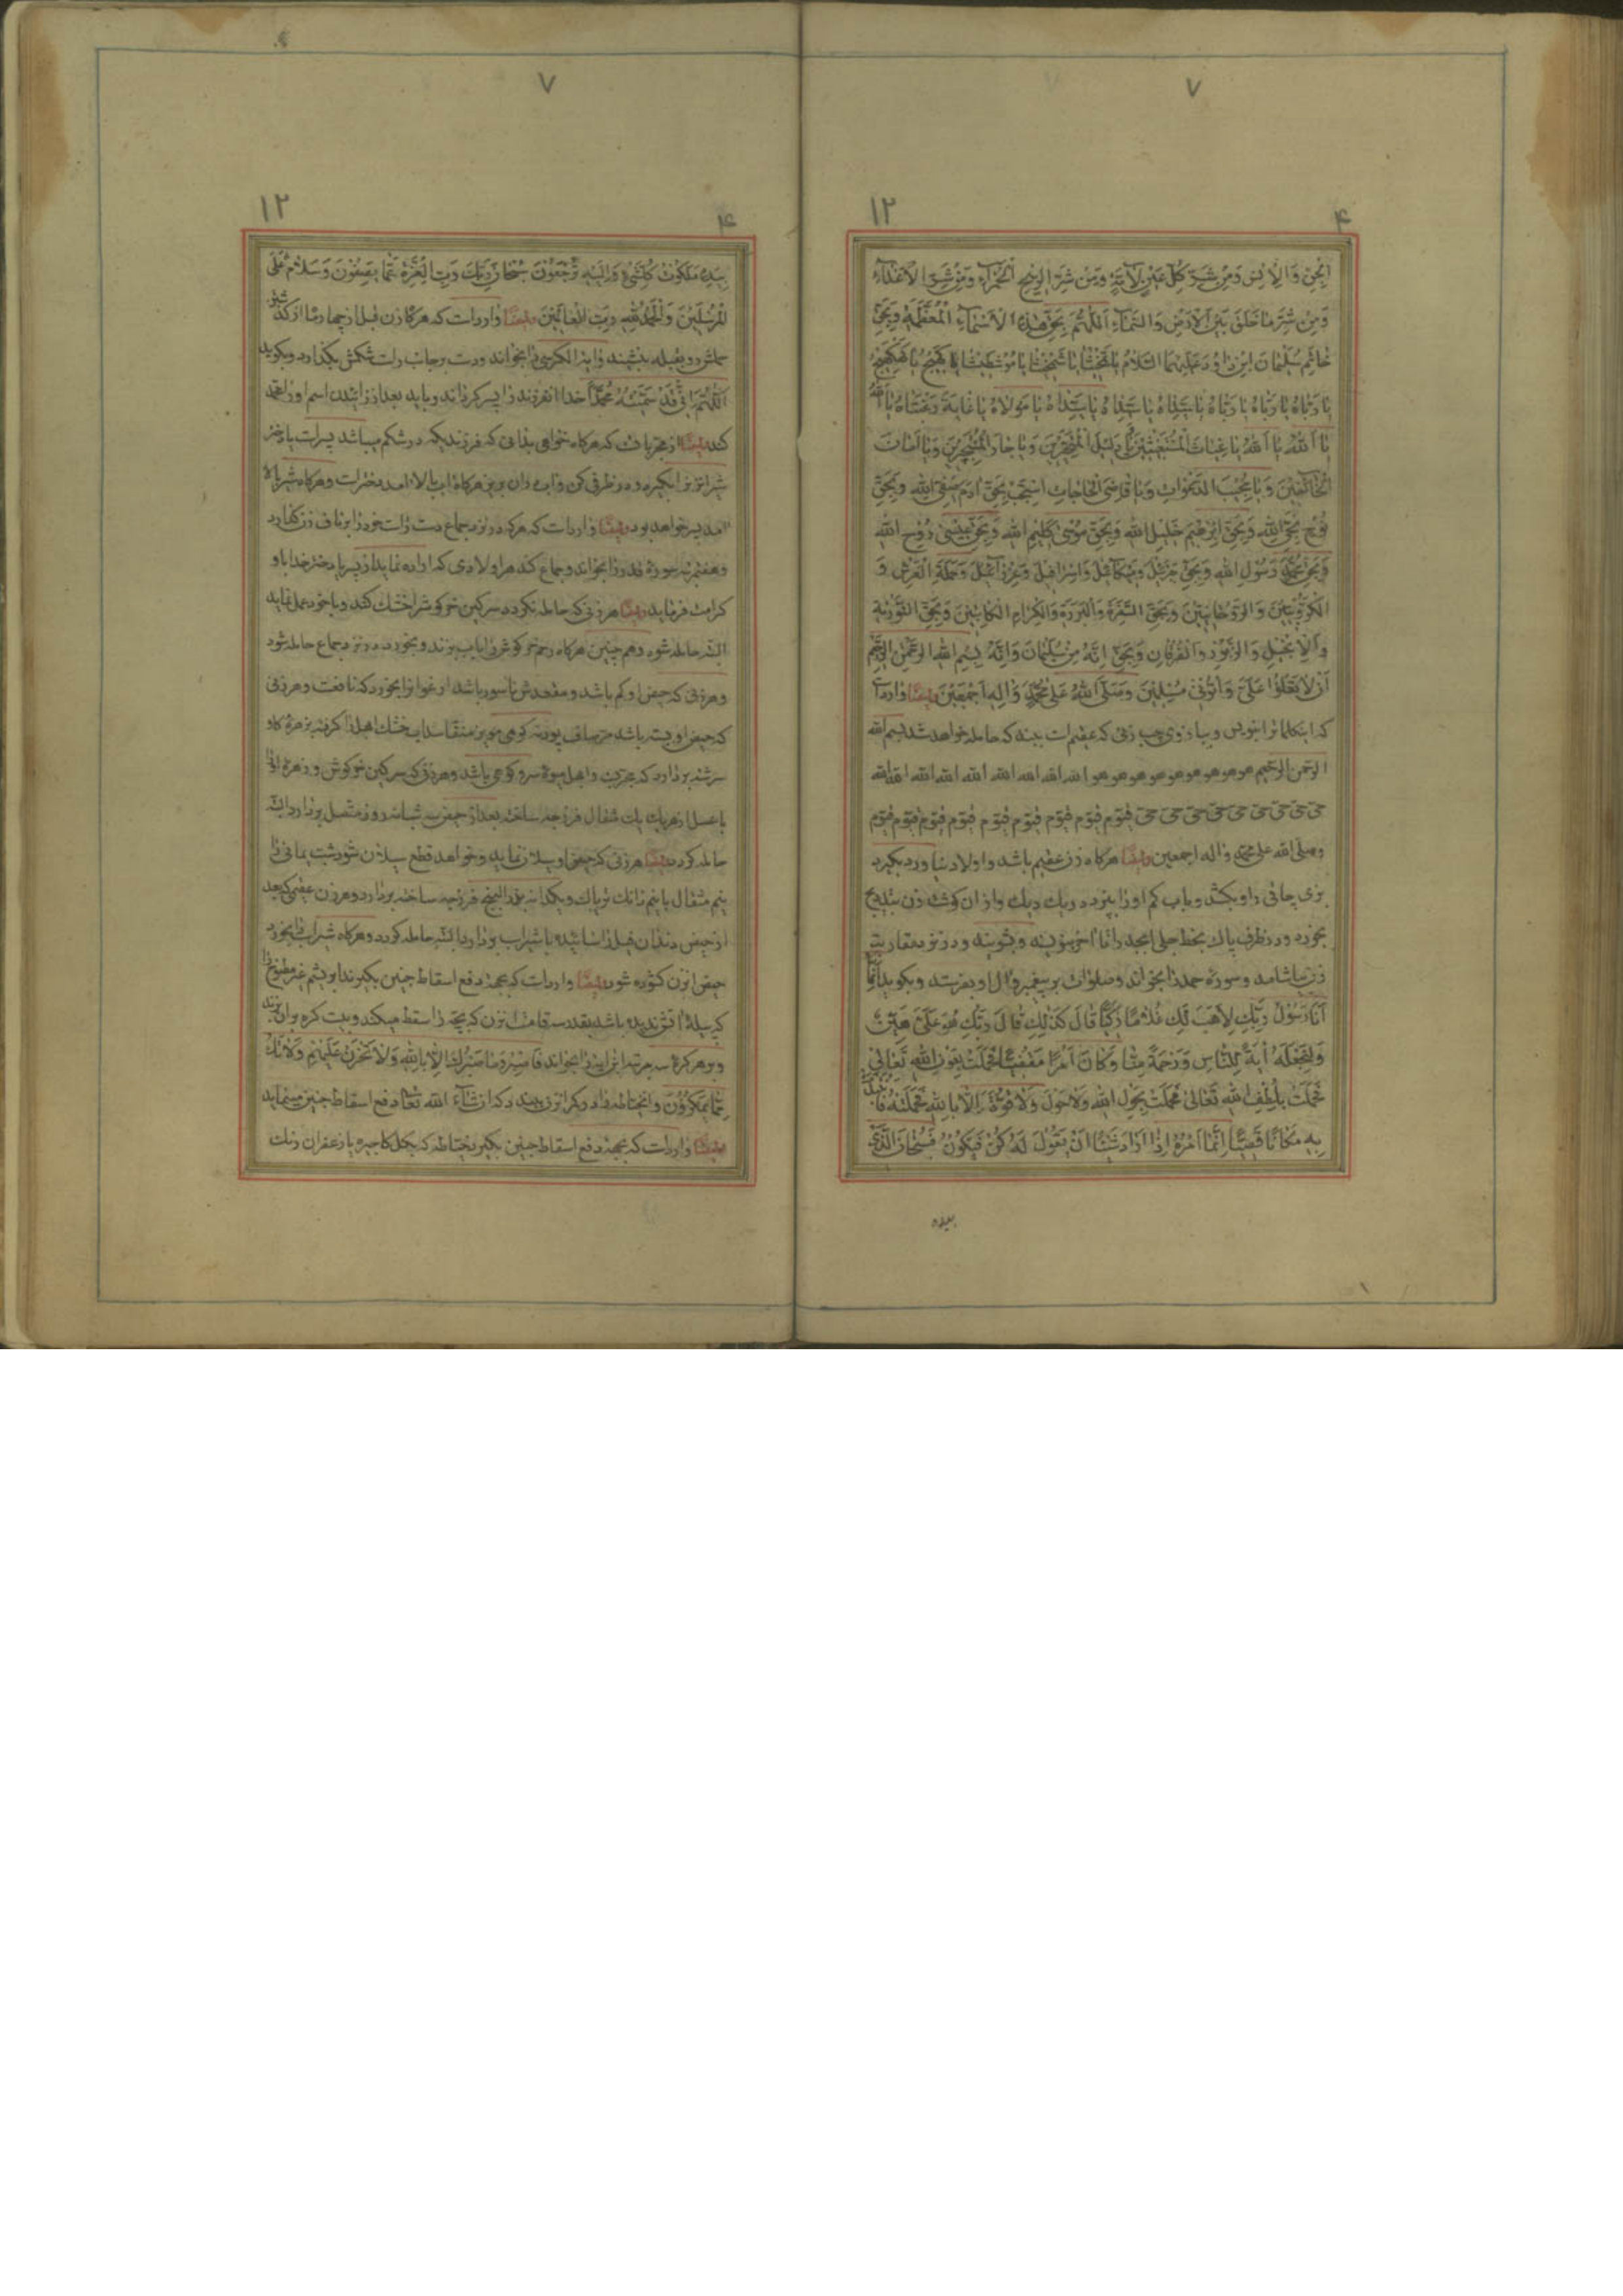 ٧
١٢
۴
الْجِنِّ وَالْاِنْسِ وَمِنْ شَرِّ كُلِّ عَيْنٍ لَآمَّةٍ وَمِنْ شَرِّ الرِّيحِ الْحَمْرَآءِ وَمِنْ شَرِّ الْاَعْدَاءِ
وَمِنْ شَرِّ مَا خَلَقَ بَيْنَ الْاَرْضِ وَالسَّمَآءِ اَللّٰهُمَّ بِحَقِّ هٰذِهِ الْاَسْمَآءِ الْمُعَظَّمَةِ وَبِحَقِّ
خَاتَمِ سُلَيْمَانَ ابْنِ دَاوُدَ عَلَيْهِمَا السَّلَامُ
يَا رَبَّاهُ يَا رَبَّاهُ يَا رَبَّاهُ يَا سَيِّدَاهُ يَا سَيِّدَاهُ يَا سَيِّدَاهُ يَا مَوْلَاهُ يَا غَايَةَ رَغْبَتَاهُ يَا اَللّٰهُ
يَا اَللّٰهُ يَا اَللّٰهُ يَا غِيَاثَ الْمُسْتَغِيثِينَ يَا دَلِيلَ الْمُتَحَيِّرِينَ وَيَا جَارَ الْمُسْتَجِيرِينَ وَيَا اَمَانَ
الْخَآئِفِينَ وَيَا مُجِيبَ الدَّعَوَاتِ وَيَا قَاضِيَ الْحَاجَاتِ اِسْتَجِبْ بِحَقِّ اٰدَمَ صَفِيِّ اللّٰهِ وَبِحَقِّ
نُوحٍ نَجِيِّ اللّٰهِ وَبِحَقِّ اِبْرٰهِيمَ خَلِيلِ اللّٰهِ وَبِحَقِّ مُوسٰى كَلِيمِ اللّٰهِ وَبِحَقِّ عِيسٰى رُوحِ اللّٰهِ
وَبِحَقِّ مُحَمَّدٍ رَسُولِ اللّٰهِ وَبِحَقِّ جَبْرَئِيلَ وَمِيكَآئِيلَ وَاِسْرَافِيلَ وَعِزْرَآئِيلَ وَحَمَلَةِ الْعَرْشِ وَ
الْكَرُّوبِيِّينَ وَالرَّوْحَانِيِّينَ وَبِحَقِّ السَّفَرَةِ وَالْبَرَرَةِ وَالْكِرَامِ الْكَاتِبِينَ وَبِحَقِّ التَّوْرٰيةِ
وَالْاِنْجِيلِ وَالزَّبُورِ وَالْفُرْقَانِ وَبِحَقِّ اِنَّهُ مِنْ سُلَيْمَانَ وَاِنَّهُ بِسْمِ اللّٰهِ الرَّحْمٰنِ الرَّحِيمِ
اَنْ لَا تَعْلُوا عَلَيَّ وَاْتُونِي مُسْلِمِينَ وَصَلَّى اللّٰهُ عَلٰى مُحَمَّدٍ وَاٰلِهِ اَجْمَعِينَ ايضًا وارد است
که این کلمات را بنویس و ببازوی چپ زنی که عقیم است ببند که حامله خواهد شد بسم الله
الرحمن الرحیم هو هو هو هو هو هو هو هو هو الله الله الله الله الله الله الله الله
حی حی حی حی حی حی حی حی حی قیوم قیوم قیوم قیوم قیوم قیوم قیوم قیوم قیوم
وصلی الله علی محمد واله اجمعین ایضًا هرگاه زن عقیم باشد و اولاد نیاورد بگیرد
بخورد و در ظرف پاک بخط جلی ابجد را تا آخر بنویسند و بشویند و در نزد مقاربت
زن بیاشامد و سوره حمد را بخواند و صلوات بر پیغمبر و ال او بفرستد و بگوید اِنَّمَا
اَنَا رَسُولُ رَبِّكِ لِاَهَبَ لَكِ غُلَامًا زَكِيًّا قَالَ كَذٰلِكِ قَالَ رَبُّكِ هُوَ عَلَيَّ هَيِّنٌ
وَلِنَجْعَلَهُ اٰيَةً لِلنَّاسِ وَرَحْمَةً مِنَّا وَكَانَ اَمْرًا مَقْضِيًّا فَحَمَلَتْ بِعَوْنِ اللّٰهِ تَعَالٰى
فَحَمَلَتْ بِلُطْفِ اللّٰهِ تَعَالٰى فَحَمَلَتْ بِحَوْلِ اللّٰهِ وَلَا حَوْلَ وَلَا قُوَّةَ اِلَّا بِاللّٰهِ فَحَمَلَتْهُ فَانْتَبَذَتْ
بِهِ مَكَانًا قَصِيًّا اِنَّمَا اَمْرُهُ اِذَا اَرَادَ شَيْئًا اَنْ يَقُولَ لَهُ كُنْ فَيَكُونُ فَسُبْحَانَ الَّذِي
بیده
٧
١٢
۴
بِيَدِهِ مَلَكُوتُ كُلِّ شَيْءٍ وَاِلَيْهِ تُرْجَعُونَ سُبْحَانَ رَبِّكَ رَبِّ الْعِزَّةِ عَمَّا يَصِفُونَ وَسَلَامٌ عَلَى
الْمُرْسَلِينَ وَالْحَمْدُ لِلّٰهِ رَبِّ الْعَالَمِينَ ايضًا وارد است که هرگاه زن قبل از چهار ماه از
حملش رو بقبله بنشیند و ایة الکرسی را بخواند و دست بر جانب راست شکمش بگذارد و بگوید
اَللّٰهُمَّ اِنِّي قَدْ سَمَّيْتُهُ مُحَمَّدًا خدا انفرزند را پسر گرداند و باید بعد از زائیدن اسم او را محمد
کند ایضًا از مجربات که هرگاه خواهی بدانی که فرزندیکه در شکم میباشد پسر است یا دختر
شیر انزن را بگیر و در ظرفی کن و اب در ان بریز هرگاه اب بالا امد دختر است و هرگاه شیر بالا
امد پسر خواهد بود ایضًا وارد است که هرکه در نزد جماع دست راست خود را بر ناف زن گذارد
و هفت مرتبه سورهٔ قدر را بخواند و جماع کند هر اولادی که اراده نماید از پسر یا دختر خدا باو
کرامت فرماید ایضًا هر زنی که حامله نگردد سرکین خرکوش را خشک کند و با خود حمل نماید
البته حامله شود و هم چنین هرگاه رحم خرکوش را باب بپزند و بخورد در نزد جماع حامله شود
و هر زنی که حیض او کم باشد و مقعدش ناسور باشد ارغوان بخورد که نافعست و هر زنی
سرشته بردارد که مجربست و اهل میوهٔ سرو کوهی باشد و هر زنی که سرکین خرکوش و زهرهٔ او را
با عسل از هریک یک مثقال فرزجه ساخته بعد از حیض سه شبانه روز متصل بردارد البته
حامله گردد ایضًا هر زنی که حیض او سیلان نماید و خواهد قطع سیلان شود شب یمانی را
حیض انزن گشوده شود ایضًا وارد است که بجهة دفع اسقاط جنین بگیرند ابریشم غیر مطبوخ را
و بر هر گره سه مرتبه این ایه را بخواند فَاصْبِرْ وَمَا صَبْرُكَ اِلَّا بِاللّٰهِ وَلَا تَحْزَنْ عَلَيْهِمْ وَلَا تَكُ
مِمَّا يَمْكُرُونَ و انخیاط را در کمر انزن ببندد که انشاء الله تعالی دفع اسقاط جنین مینماید
ایضًا وارد است که بجهة دفع اسقاط جنین بگیر خیاطه که بگل کاجیره یا زعفران رنگ